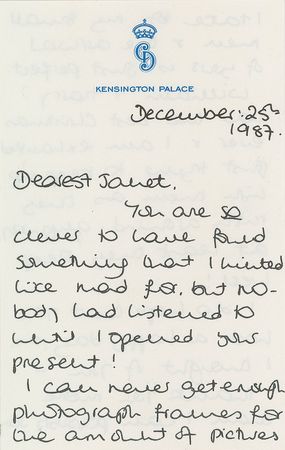 KENSINGTON PALACE
December. 25th
1987.
Dearest Janet,
You are so
clever to have found
something that I hinted
like mad for, but no-
body had listened to
until I opened your
present!
I can never get enough
photograph frames for
the amount of pictures